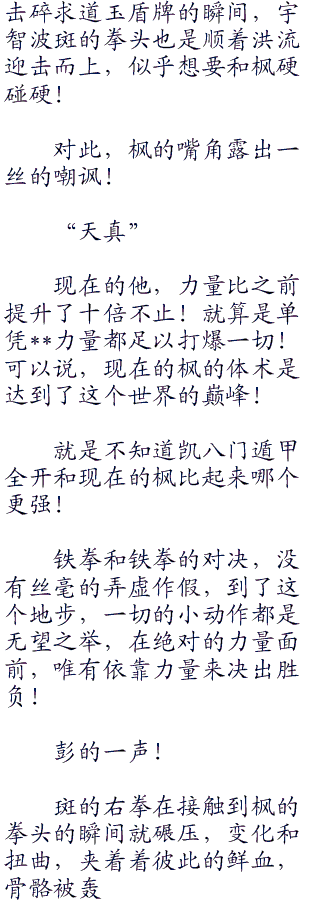 击碎求道玉盾牌的瞬间，宇
智波斑的拳头也是顺着洪流
迎击而上，似乎想要和枫硬
碰硬！
对此，枫的嘴角露出一
丝的嘲讽！
“天真”
现在的他，力量比之前
提升了十倍不止！就算是单
凭**力量都足以打爆一切！
可以说，现在的枫的体术是
达到了这个世界的巅峰！
就是不知道凯八门遁甲
全开和现在的枫比起来哪个
更强！
铁拳和铁拳的对决，没
有丝毫的弄虚作假，到了这
个地步，一切的小动作都是
无望之举，在绝对的力量面
前，唯有依靠力量来决出胜
负！
彭的一声！
斑的右拳在接触到枫的
拳头的瞬间就碾压，变化和
扭曲，夹着着彼此的鲜血，
骨骼被轰